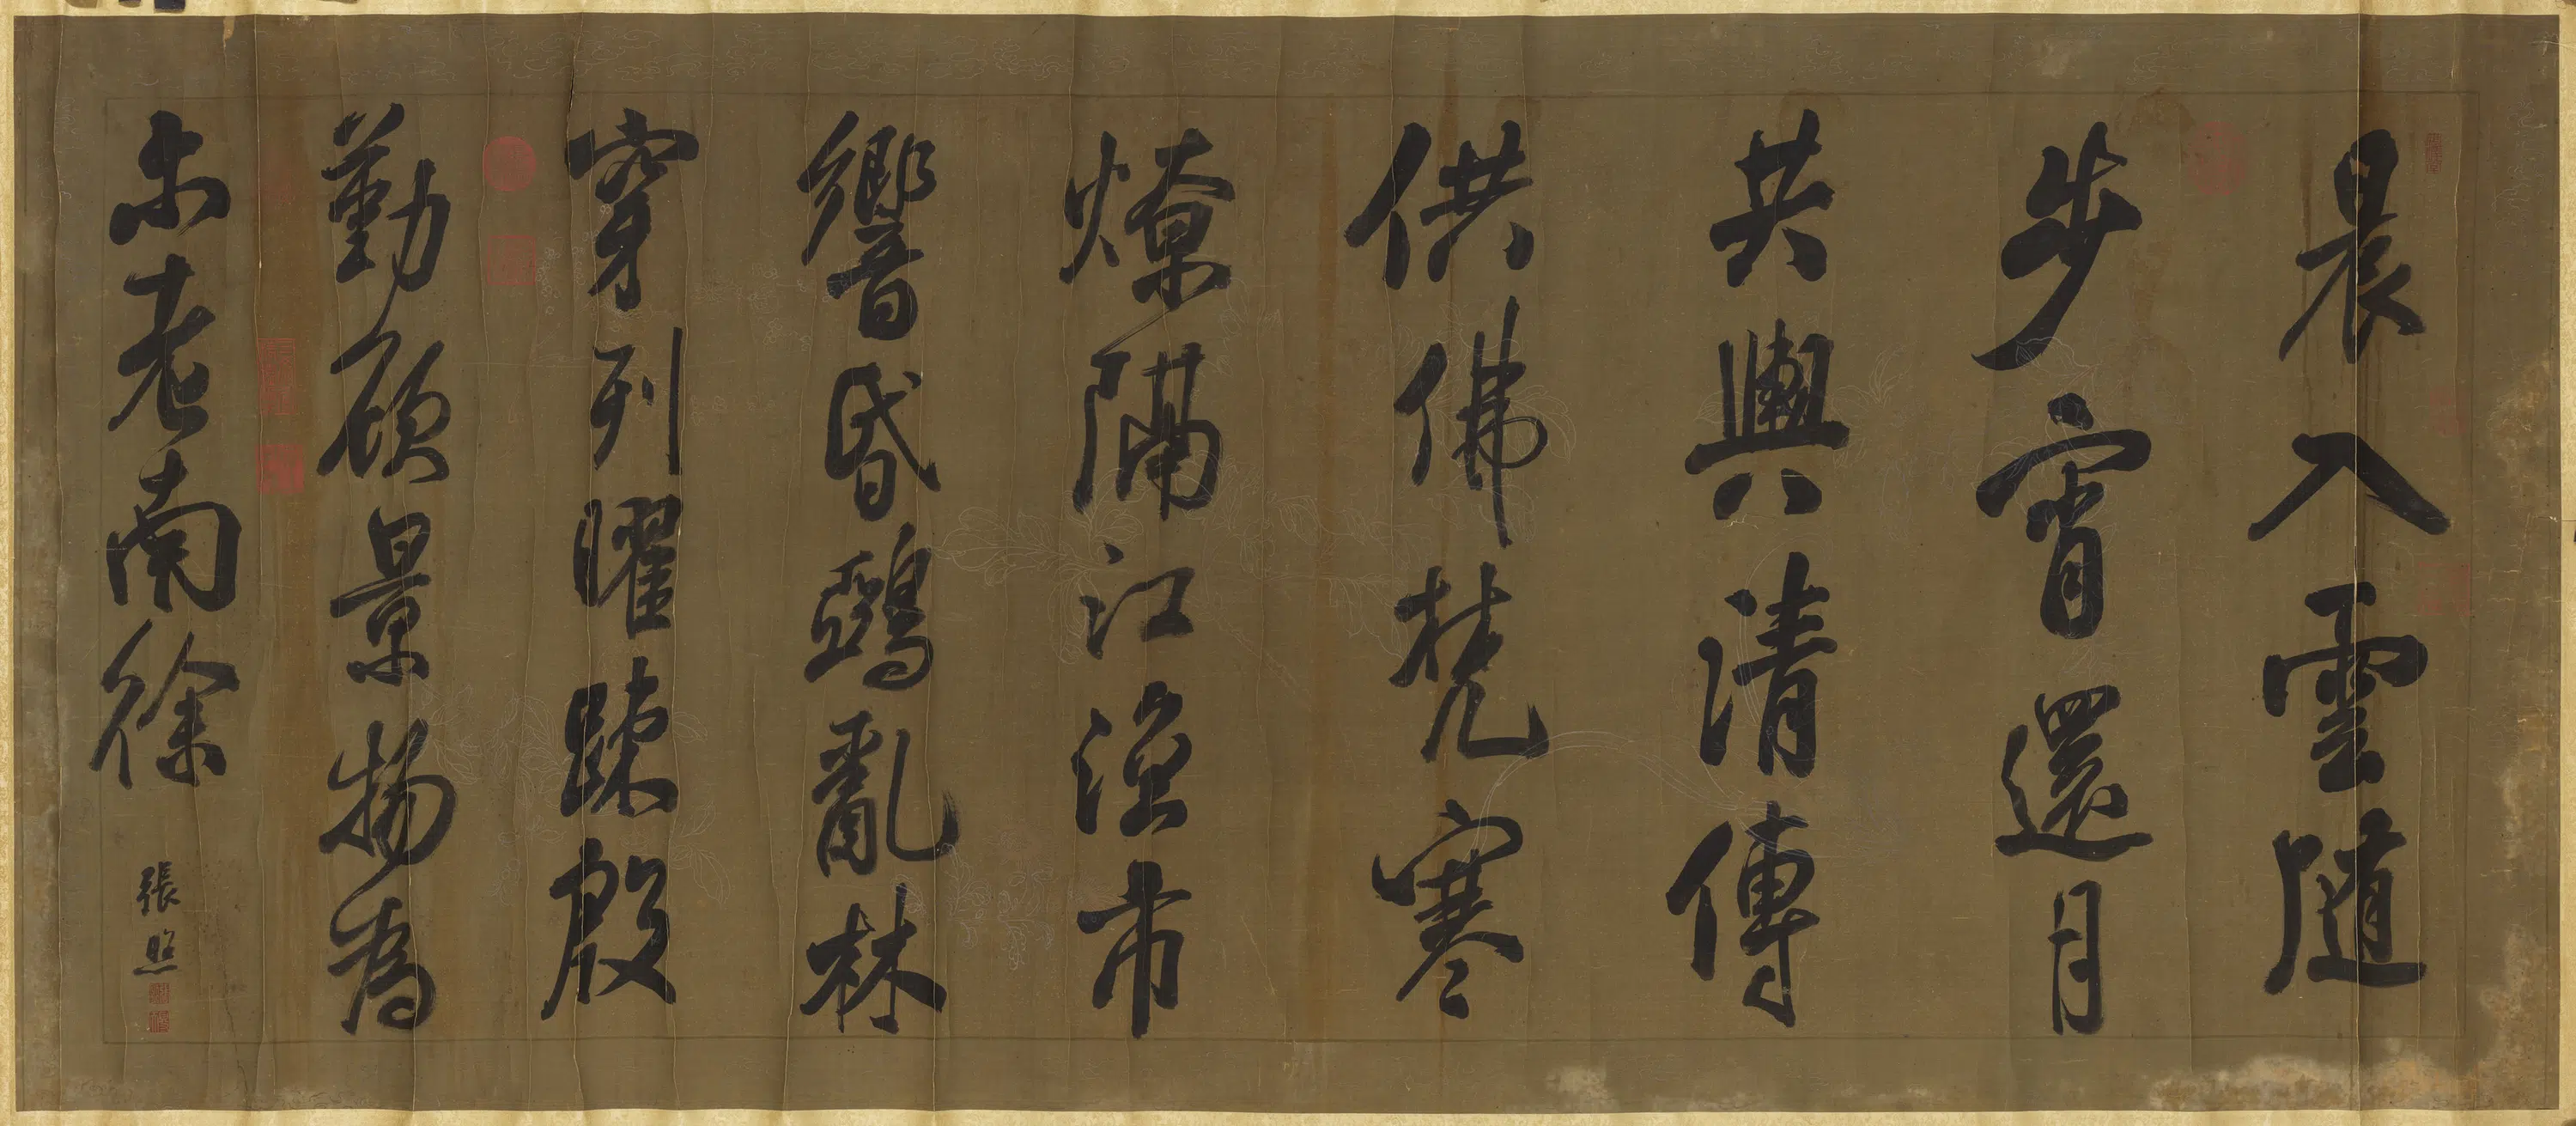 晨入雲随
步宵還月
共輿清傳
供佛梵寒
燎隔江漁市
響昏鵶亂林
穿列曜踈殷
勤頋景物為
尓老南徐
張照